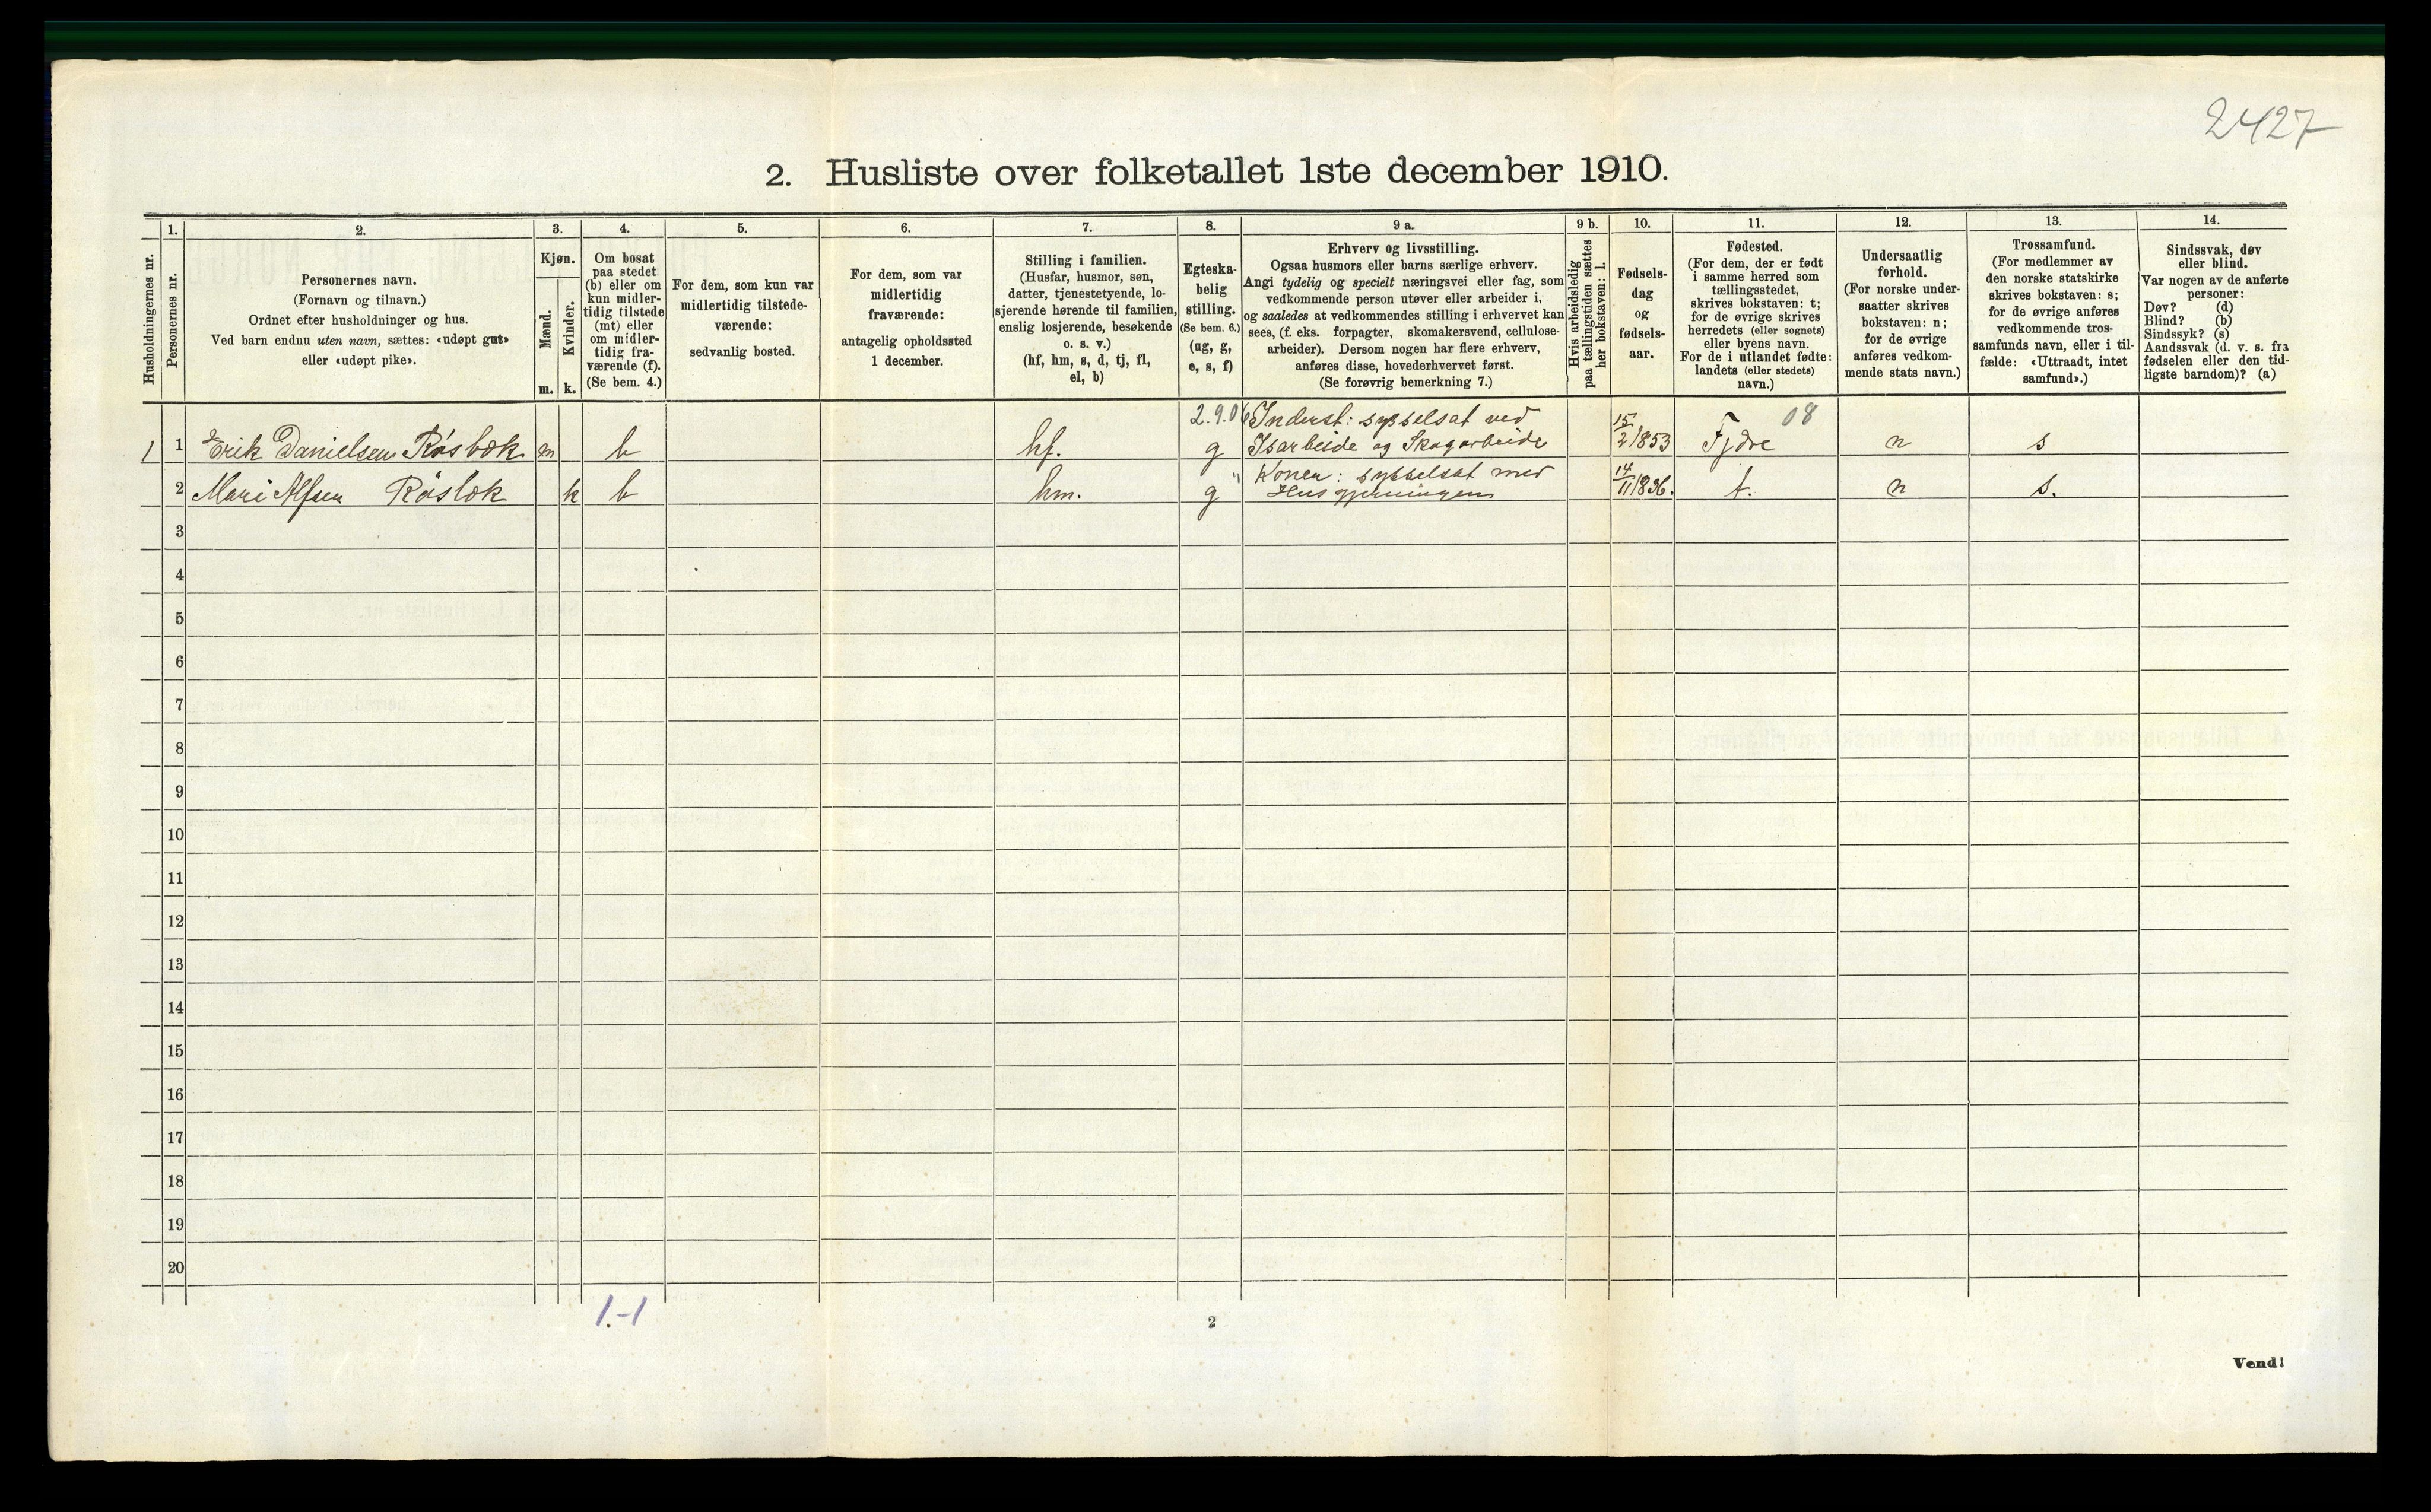 2427
2. Husliste over folketallet 1ste december 1910.
Husholdningernes nr.
1.
Personernes nr.
2.
Personernes navn.
(Fornavn og tilnavn.)
Ordnet efter husholdninger og hus.
Ved barn endnu uten navn, sættes: «udøpt gut»
eller «udøpt pike».
3.
Kjøn.
Mænd.
m.
Kvinder.
k.
4.
Om bosat
paa stedet
(b) eller om
kun midler-
tidig tilstede
(mt) eller
om midler-
tidig fra-
værende (f).
(Se bem. 4.)
5.
For dem, som kun var
midlertidig tilstede-
værende:
sedvanlig bosted.
6.
For dem, som var
midlertidig
fraværende:
antagelig opholdssted
1 december.
7.
Stilling i familien.
(Husfar, husmor, søn,
datter, tjenestetyende, lo-
sjerende hørende til familien,
enslig losjerende, besøkende
o. s. v.)
(hf, hm, s, d, tj, fl,
el, b)
8.
Egteska-
belig
stilling.
(Se bem. 6.)
(ug, g,
e, s, f)
9 a.
Erhverv og livsstilling.
Ogsaa husmors eller barns særlige erhverv.
Angi tydelig og specielt næringsvei eller fag, som
vedkommende person utøver eller arbeider i,
og saaledes at vedkommendes stilling i erhvervet kan
sees, (f. eks. forpagter, skomakersvend, cellulose-
arbeider). Dersom nogen har flere erhverv,
anføres disse, hovederhvervet først.
(Se forøvrig bemerkning 7.)
9 b.
Hvis arbeidsledig
paa tællingstiden sættes
her bokstaven: l.
10.
Fødsels-
dag
og
fødsels-
aar.
11.
Fødested.
(For dem, der er født
i samme herred som
tællingsstedet,
skrives bokstaven: t;
for de øvrige skrives
herredets (eller sognets)
eller byens navn.
For de i utlandet fødte:
landets (eller stedets)
navn.)
12.
Undersaatlig
forhold.
(For norske under-
saatter skrives
bokstaven: n;
for de øvrige
anføres vedkom-
mende stats navn.)
13.
Trossamfund.
(For medlemmer av
den norske statskirke
skrives bokstaven: s;
for de øvrige anføres
vedkommende tros-
samfunds navn, eller i til-
fælde: «Uttraadt, intet
samfund».)
14.
Sindssvak, døv
eller blind.
Var nogen av de anførte
personer:
Døv? (d)
Blind? (b)
Sindssyk? (s)
Aandssvak (d. v. s. fra
fødselen eller den tid-
ligste barndom)? (a)
2.9.06 Inderst: sysselsat ved 08
1 1 Erik Danielsen Røsbæk m b hf. g Isarbeide og Skogarbeide 15/2 1853 Fjdre n s
" Konen: sysselsat med
2 Mari Alfsen Røsbæk k b hm. g Husgjerningen 14/11 1836. t. n s.
3
4
5
6
7
8
9
10
11
12
13
14
15
16
17
18
19
20
1.-1
2
Vend!